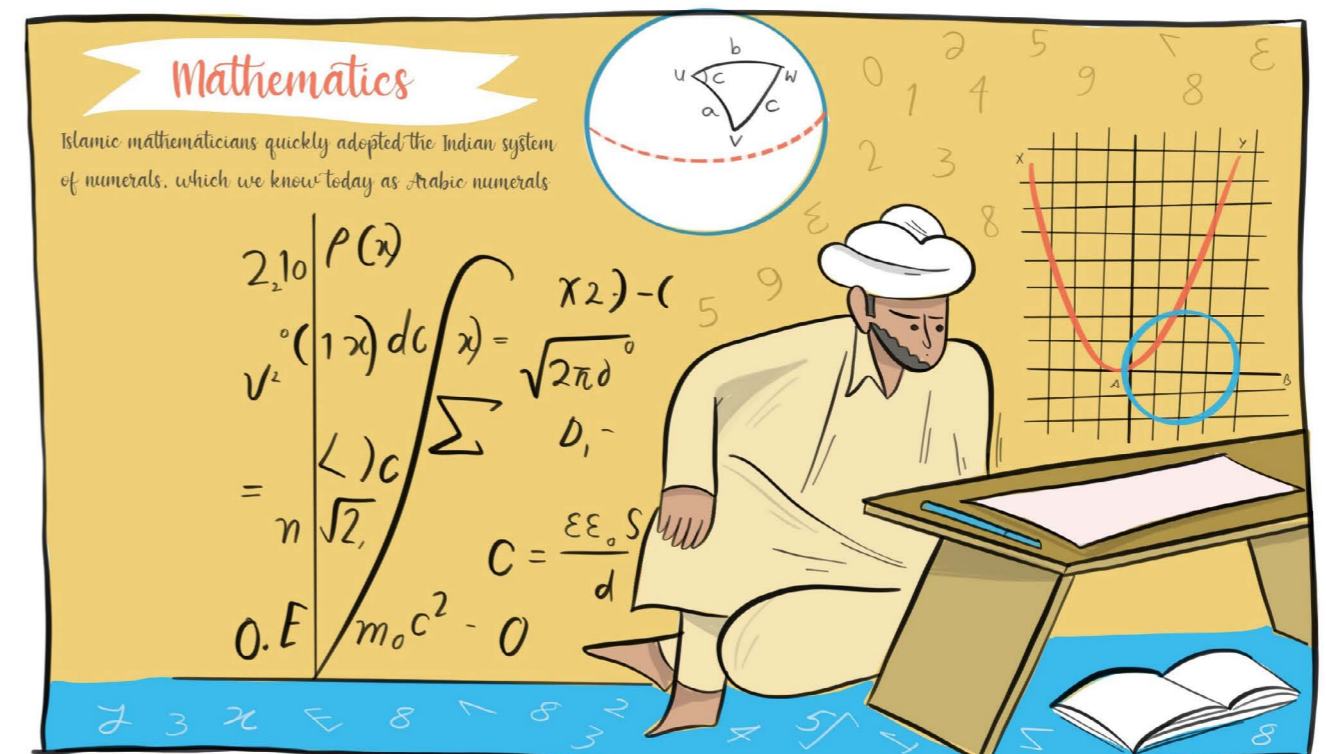 Mathematics
Islamic mathematicians quickly adopted the Indian system
of numerals, which we know today as Arabic numerals
b
u c w
a c
v
0 2 5 3
1 4 9 8
2 3
8
5 9
x y
A B
2,10 P(x)
x2)-(
°(1x)dc x) =
√2πδ °
V²
Σ D, -
< )c
=
n √2,
C = εε₀S
d
0.E m₀c² - 0
3 x 8 8 2
3 4 5
8